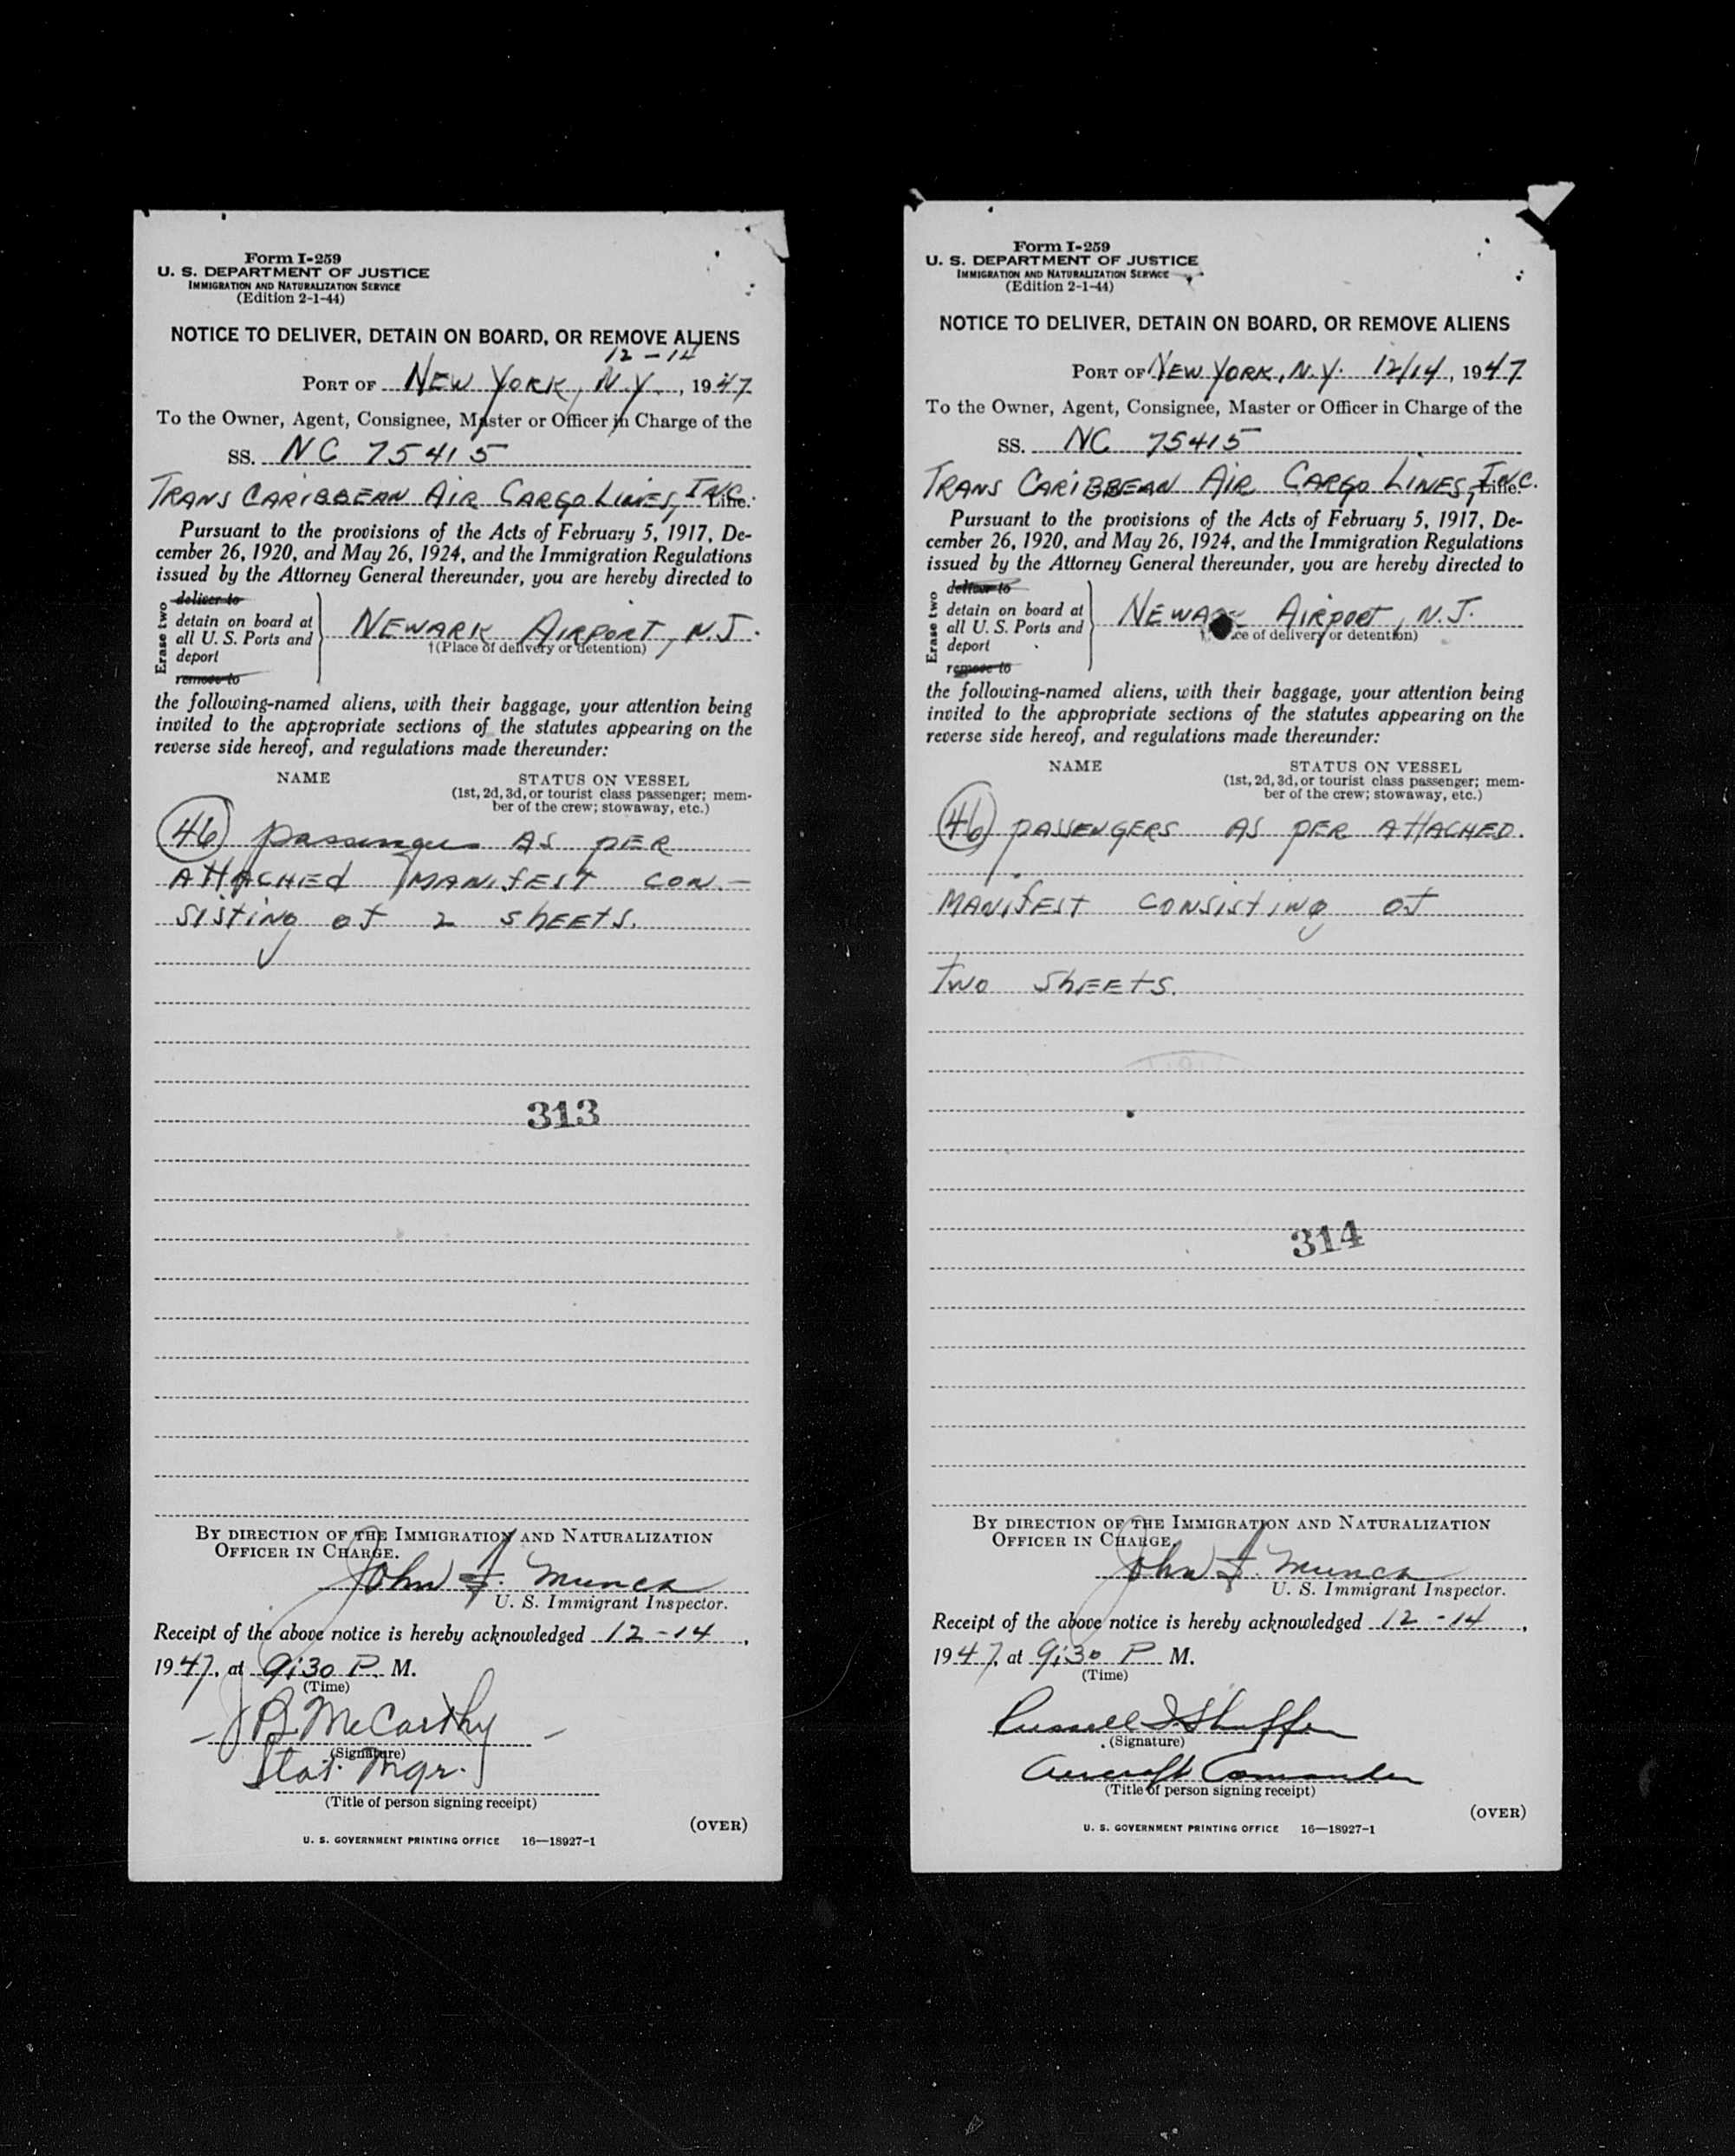 Form I-259
U. S. DEPARTMENT OF JUSTICE
IMMIGRATION AND NATURALIZATION SERVICE
(Edition 2-1-44)
NOTICE TO DELIVER, DETAIN ON BOARD, OR REMOVE ALIENS
12-14
PORT OF NEW YORK, N.Y., 1947
To the Owner, Agent, Consignee, Master or Officer in Charge of the
SS. NC 75415
TRANS CARIBBEAN AIR CARGO LINES, INC. Line.
Pursuant to the provisions of the Acts of February 5, 1917, De-
cember 26, 1920, and May 26, 1924, and the Immigration Regulations
issued by the Attorney General thereunder, you are hereby directed to
Erase two
deliver to
detain on board at
all U. S. Ports and
deport
remove to
NEWARK AIRPORT, N.J.
†(Place of delivery or detention)
the following-named aliens, with their baggage, your attention being
invited to the appropriate sections of the statutes appearing on the
reverse side hereof, and regulations made thereunder:
NAME
STATUS ON VESSEL
(1st, 2d, 3d, or tourist class passenger; mem-
ber of the crew; stowaway, etc.)
46 passengers AS PER
ATTACHED MANIFEST CON-
SISTING of 2 SHEETS.
313
BY DIRECTION OF THE IMMIGRATION AND NATURALIZATION
OFFICER IN CHARGE.
John
U. S. Immigrant Inspector.
Receipt of the above notice is hereby acknowledged 12-14,
1947, at 9:30 P. M.
(Time)
J B McCarthy
(Signature)
Stat. Mgr.
(Title of person signing receipt)
(OVER)
U. S. GOVERNMENT PRINTING OFFICE 16—18927-1
Form I-259
U. S. DEPARTMENT OF JUSTICE
IMMIGRATION AND NATURALIZATION SERVICE
(Edition 2-1-44)
NOTICE TO DELIVER, DETAIN ON BOARD, OR REMOVE ALIENS
PORT OF NEW YORK, N.Y. 12/14, 1947
To the Owner, Agent, Consignee, Master or Officer in Charge of the
SS. NC 75415
TRANS CARIBBEAN AIR CARGO LINES, INC. Line.
Pursuant to the provisions of the Acts of February 5, 1917, De-
cember 26, 1920, and May 26, 1924, and the Immigration Regulations
issued by the Attorney General thereunder, you are hereby directed to
Erase two
deliver to
detain on board at
all U. S. Ports and
deport
remove to
NEWARK AIRPORT, N.J.
ce of delivery or detention)
the following-named aliens, with their baggage, your attention being
invited to the appropriate sections of the statutes appearing on the
reverse side hereof, and regulations made thereunder:
NAME
STATUS ON VESSEL
(1st, 2d, 3d, or tourist class passenger; mem-
ber of the crew; stowaway, etc.)
46 PASSENGERS AS PER ATTACHED.
MANIFEST CONSISTING of
TWO SHEETS.
314
BY DIRECTION OF THE IMMIGRATION AND NATURALIZATION
OFFICER IN CHARGE.
John
U. S. Immigrant Inspector.
Receipt of the above notice is hereby acknowledged 12-14,
1947, at 9:30 P M.
(Time)
Russell
(Signature)
Aircraft Commander
(Title of person signing receipt)
(OVER)
U. S. GOVERNMENT PRINTING OFFICE 16—18927-1